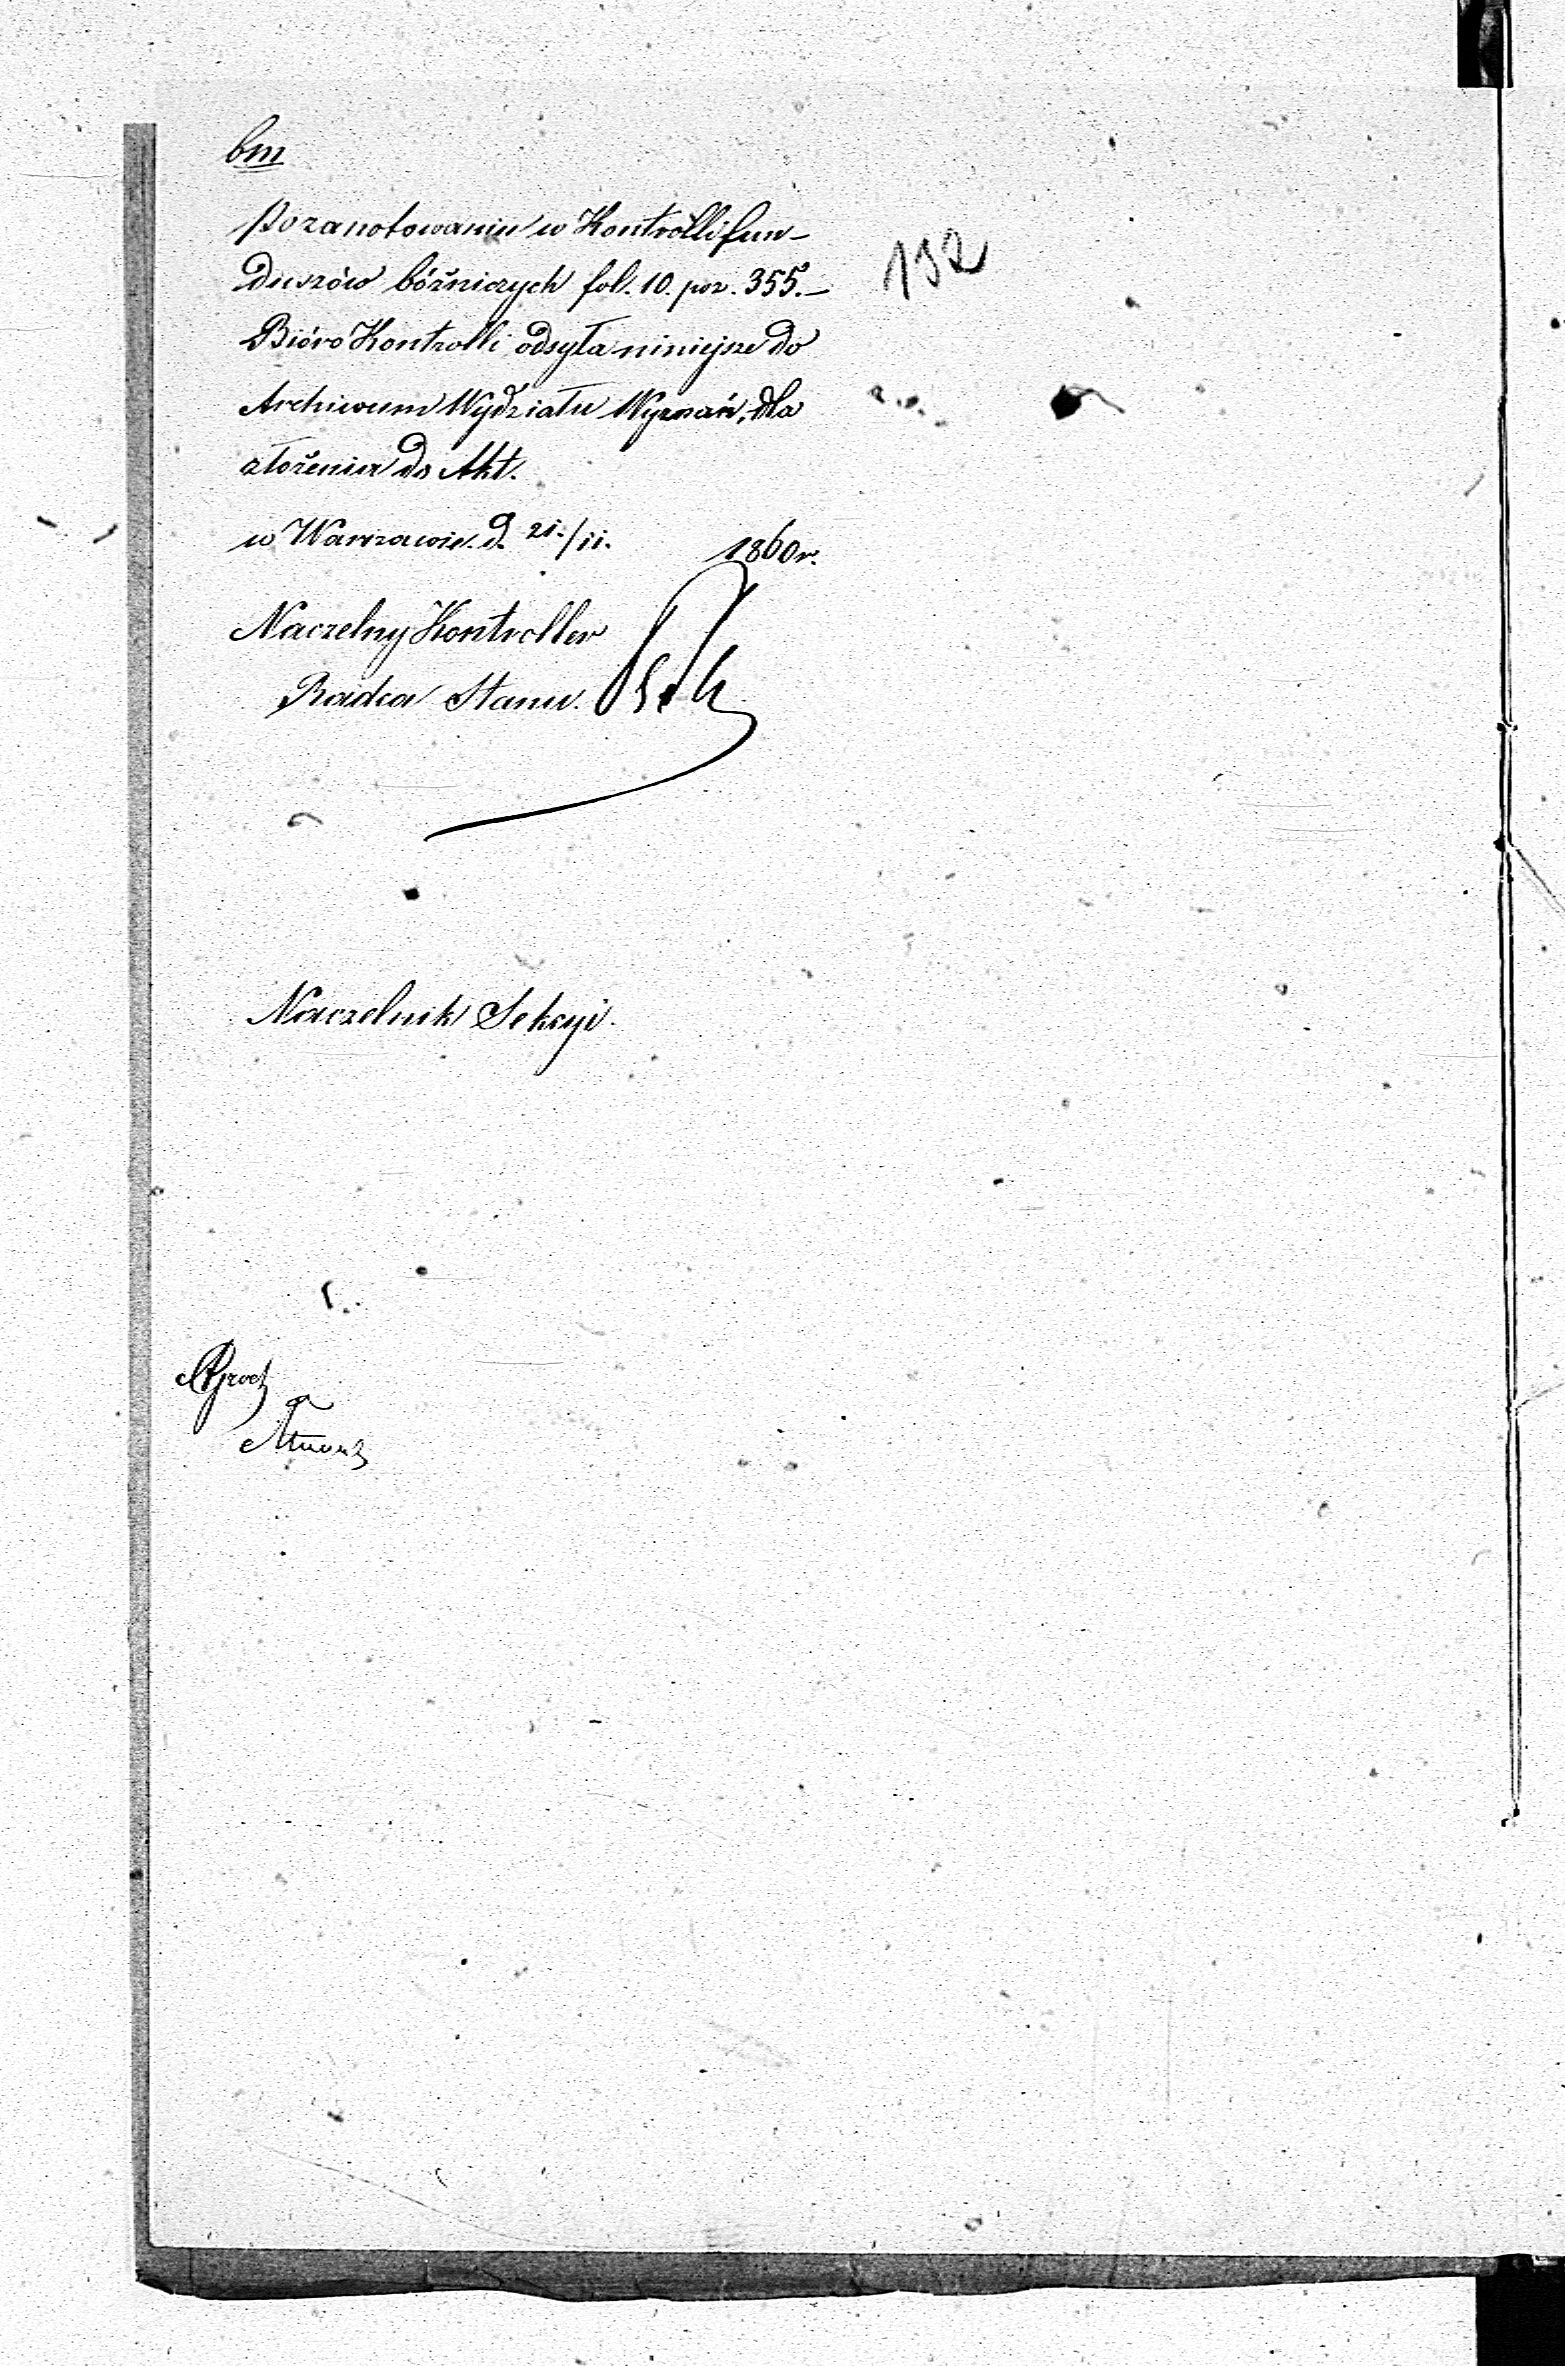 bm
Po zanotowaniu w Kontrolli fun-
duszów bóżniczych fol. 10. poz. 355.—
132
Bióro Kontrolli odsyła niniejsze do
Archiwum Wydziału Wyznań, dla
złożenia do Akt.
w Warszawie d. 21./11. 1860 r.
Naczelny Kontroller
Radca Stanu.
Naczelnik Sekcyi.